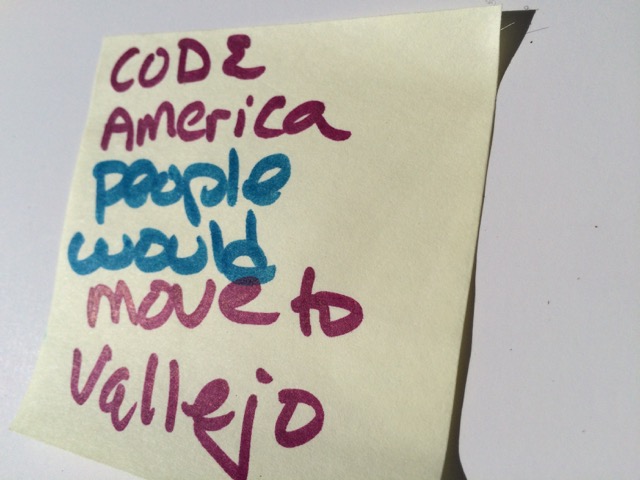 CODE
America
people
would
move to
Vallejo